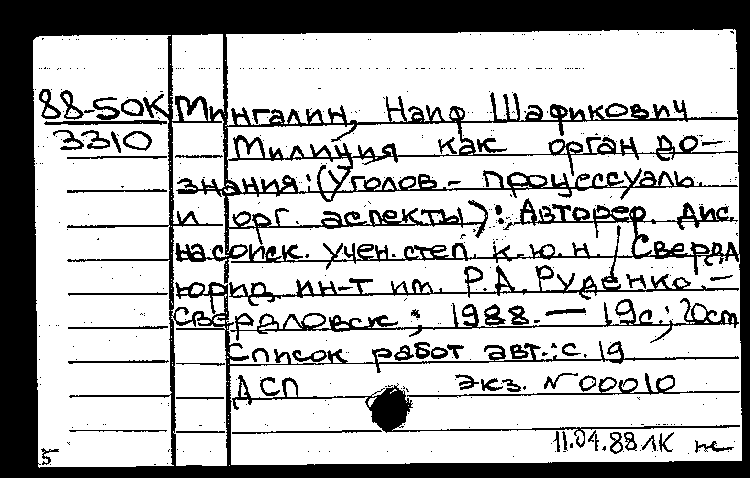 88-50К Мингалин, Наиф Шафикович
3310 Милиция как орган до-
знания: (Уголов.- процессуаль.
и орг. аспекты): Автореф. дис.
на соиск. учен. степ. к.ю.н. / Свердл
юрид. ин-т им. Р.А. Руденко. -
Свердловск; 1988. — 19с.; 20cm
Список работ авт.: с. 19
ДСП экз. N 00010
11.04.88 ЛК не
5